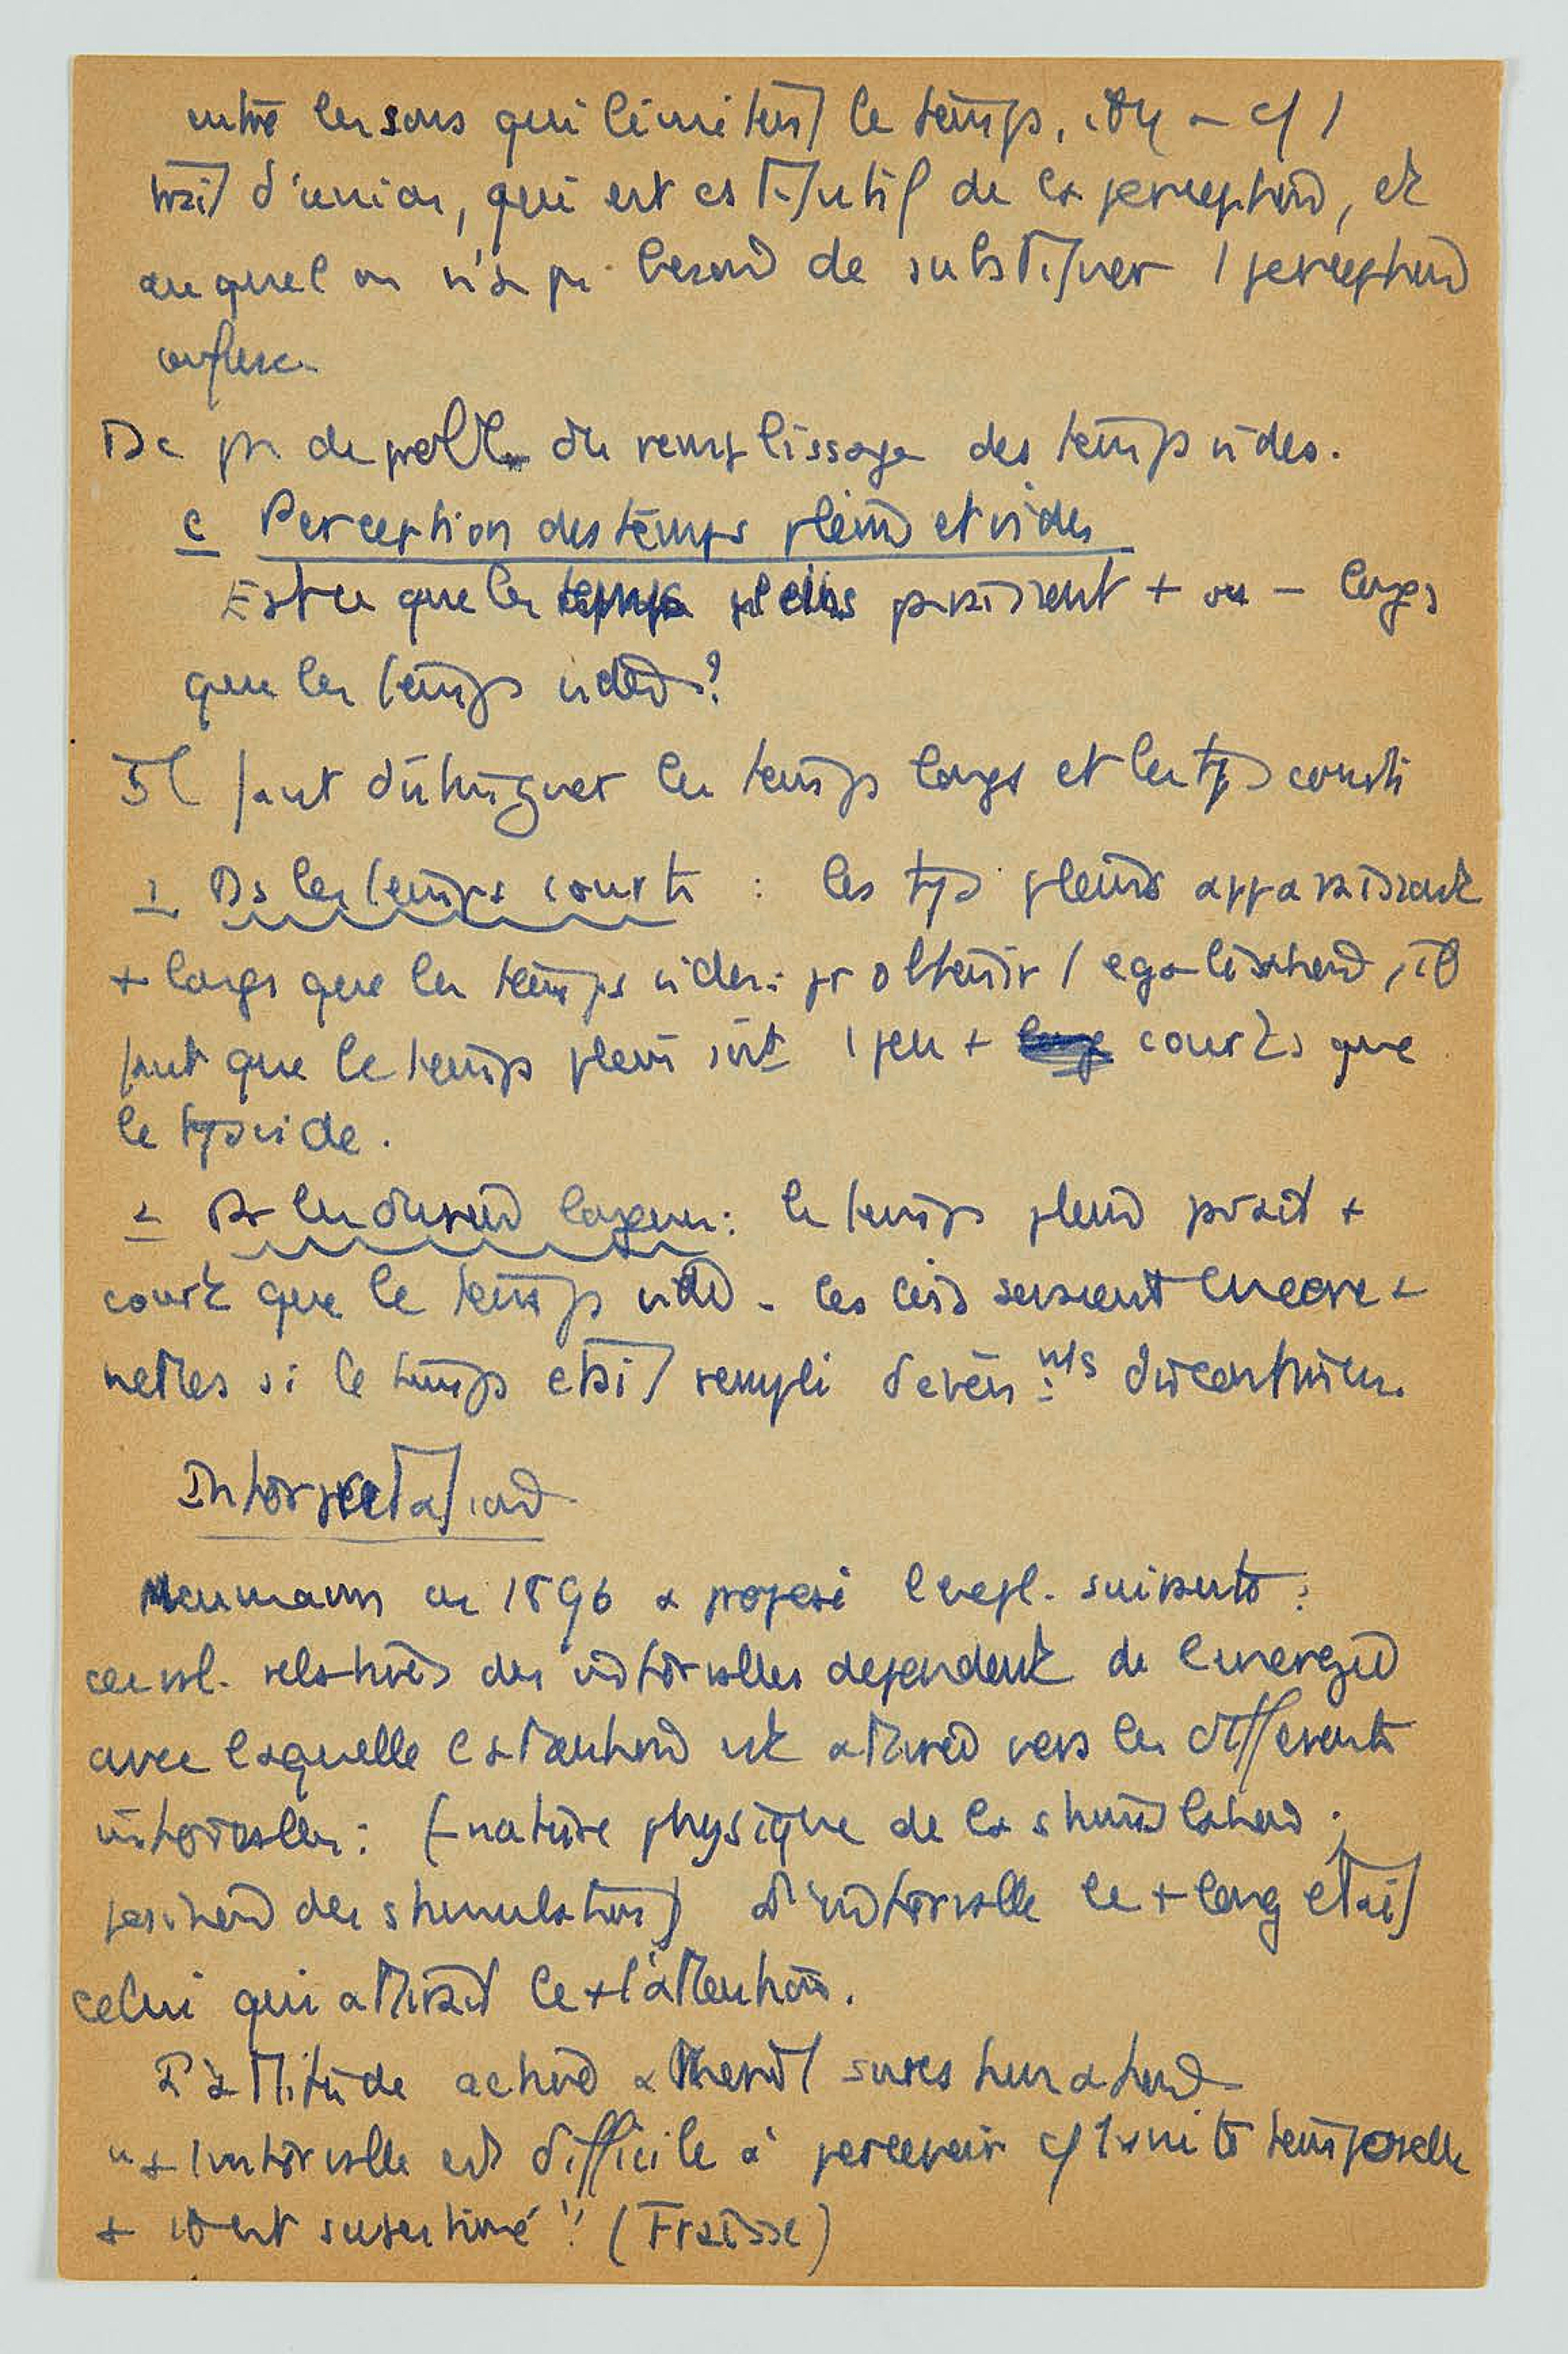 entre les sons qui limitent le temps,
trait d'union, qui est de la perception, et
auquel on n'a pas besoin de substituer 1 perception
confuse.
Dc pas de probl. du remplissage des temps vides.
c Perception des temps pleins et vides
Est ce que les temps pleins paraissent + ou - longs
que les temps vides ?
Il faut distinguer les temps longs et les tps courts
1 Ds les temps courts : les tps pleins apparaissent
+ longs que les temps vides : pr obtenir 1 egalisation, il
faut que le temps plein soit 1 peu + courts que
le tps vide.
2 Ds les durées longues : le temps plein parait +
court que le temps vide - les lois seraient encore +
nettes si le temps etait rempli d'evenmts discontinus.
Interpretation
Meumann en 1896 a proposé l'expl. suivante :
relatives des intervalles dependent de l'energie
avec laquelle l'attention est attirée vers les differents
intervalles : (- nature physique de la stimulation ;
position des stimulations) l'intervalle le + long etait
celui qui attirait le + l'attention.
L'attitude active
"+ l'intervalle est difficile à percevoir cf 1 unité temporelle
+ il est surestimé" (Fraisse)